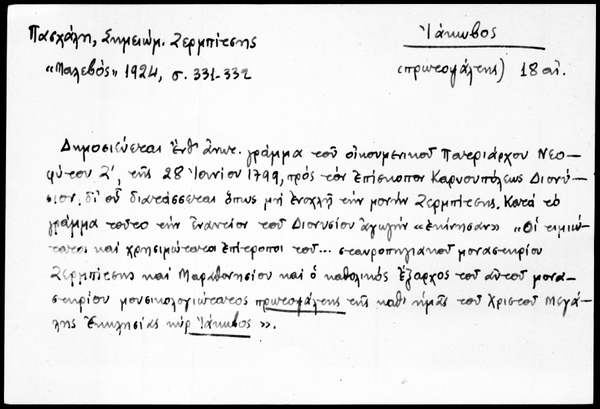 Πασχάλη, Σημειώμ. Ζερμπίτσης
Ἰάκωβος
«Μαλεβός» 1924, σ. 331-332
(πρωτοψάλτης) 18 αἰ.
Δημοσιεύεται ἐνθ' ἀνωτ. γράμμα τοῦ οἰκουμενικοῦ Πατριάρχου Νεο-
φύτου Ζ', τῆς 28 Ἰουνίου 1799, πρὸς τὸν ἐπίσκοπον Καρυουπόλεως Διονύ-
σιον, δι' οὗ διατάσσεται ὅπως μὴ ἐνοχλῇ τὴν μονὴν Ζερμπίτσης. Κατὰ τὸ
γράμμα τοῦτο τὴν ἐναντίον τοῦ Διονυσίου ἀγωγὴν «ἐκίνησαν» «Οἱ τιμιώ-
τατοι καὶ χρησιμώτατοι ἐπίτροποι τοῦ... σταυροπηγιακοῦ μοναστηρίου
Ζερμπίτσης καὶ Μαραθονησίου καὶ ὁ καθολικὸς ἔξαρχος τοῦ αὐτοῦ μονα-
στηρίου μουσικολογιώτατος πρωτοψάλτης τῆς καθ' ἡμᾶς τοῦ Χριστοῦ Μεγά-
λης Ἐκκλησίας κὺρ Ἰάκωβος ».